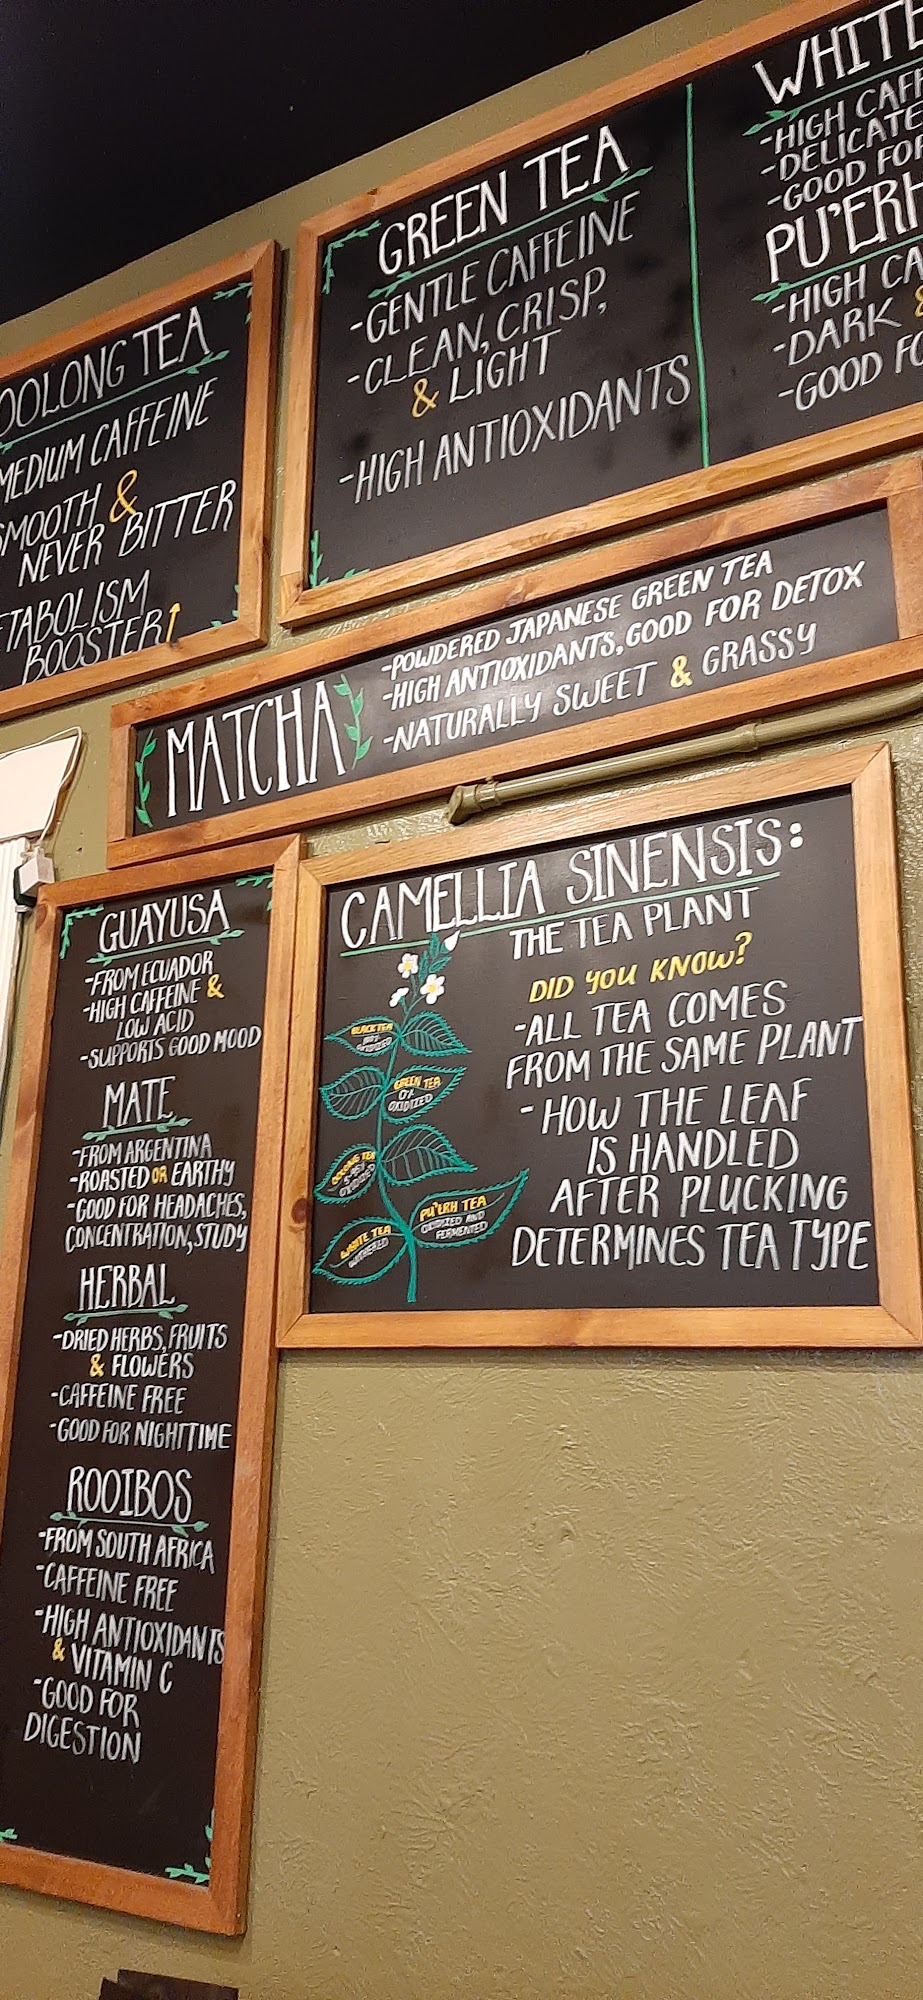 OOLONG TEA
MEDIUM CAFFEINE
SMOOTH &
NEVER BITTER
METABOLISM
BOOSTER
GREEN TEA
-GENTLE CAFFEINE
-CLEAN, CRISP,
& LIGHT
-HIGH ANTIOXIDANTS
WHITE
-HIGH CAFF
-DELICATE
-GOOD FOR
PU'ERH
-HIGH CA
-DARK &
-GOOD FO
MATCHA
-POWDERED JAPANESE GREEN TEA
-HIGH ANTIOXIDANTS, GOOD FOR DETOX
-NATURALLY SWEET & GRASSY
GUAYUSA
-FROM ECUADOR
-HIGH CAFFEINE &
LOW ACID
-SUPPORTS GOOD MOOD
MATE
-FROM ARGENTINA
-ROASTED OR EARTHY
-GOOD FOR HEADACHES,
CONCENTRATION, STUDY
HERBAL
-DRIED HERBS, FRUITS
& FLOWERS
-CAFFEINE FREE
-GOOD FOR NIGHTTIME
ROOIBOS
-FROM SOUTH AFRICA
-CAFFEINE FREE
-HIGH ANTIOXIDANTS
& VITAMIN C
-GOOD FOR
DIGESTION
CAMELLIA SINENSIS:
THE TEA PLANT
DID YOU KNOW?
-ALL TEA COMES
FROM THE SAME PLANT
-HOW THE LEAF
IS HANDLED
AFTER PLUCKING
DETERMINES TEA TYPE
BLACK TEA
OXIDIZED
GREEN TEA
0%
OXIDIZED
OOLONG TEA
OXIDIZED
PU'ERH TEA
OXIDIZED AND
FERMENTED
WHITE TEA
WITHERED